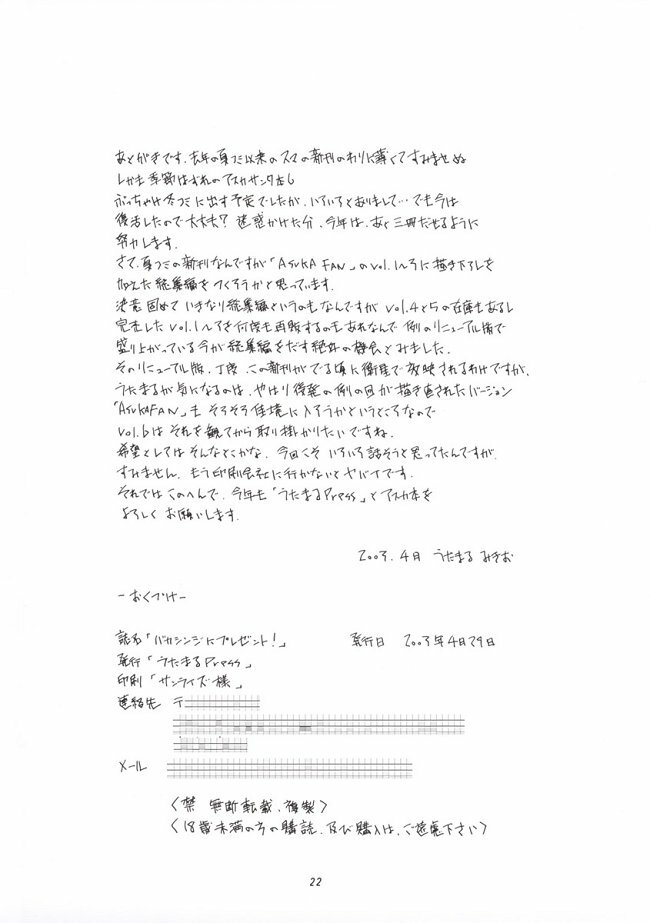 あとがきです。去年の夏コミ以来のアスカの新刊のわりに薄くてすみませぬ
しかも季節はずれのアスカサンタ本
ぶっちゃけ冬コミに出す予定でしたが、いろいろとありまして…でも今は
復活したので大丈夫? 迷惑かけた分、今年は、あと三冊だせるように
努力します。
さて、夏コミの新刊なんですが「ASUKA FAN」のvol.1〜3に描き下ろしを
加えた総集編をつくろうかと思っています。
決意固めていきなり総集編というのもなんですがvol.4と5の在庫もあるし
完売したvol.1〜3を何度も再販するのもあれなんで例のリニューアル版で
盛り上がっている今が総集編をだす絶好の機会とみました。
そのリニューアル版、丁度、この新刊がでる頃に衛星で放映されるわけですが、
うたまるが気になるのは、やはり後発の例の回が描き直されたバージョン
「ASUKAFAN」もそろそろ佳境に入ろうかというところなので
vol.6はそれを観てから取り掛かりたいですね。
希望としてはそんなとこかな。今回こそいろいろ話そうと思ってたんですが、
すみません。もう印刷会社に行かないとヤバイです。
それではこのへんで、今年も「うたまるPress」とアスカ本を
よろしくお願いします。
2003.4月 うたまる みきお
－おくづけ－
誌名「バカシンジにプレゼント!」 発行日 2003年4月29日
発行「うたまるPress」
印刷「サンライズ様」
連絡先 〒
メール
〈禁 無断転載、複製〉
〈18歳未満の方の購読、及び購入は、ご遠慮下さい〉
22